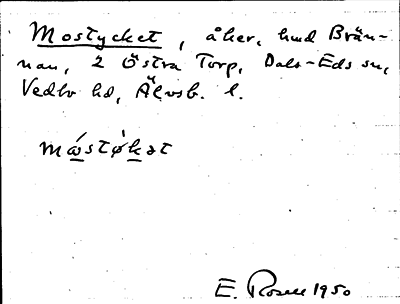 Mostycket, åker, hmd Brän-
nan, 2 Östra Torp, Dals-Eds sn,
Vedbo hd, Älvsb. l.
måstøkət
E. Rosell 1950